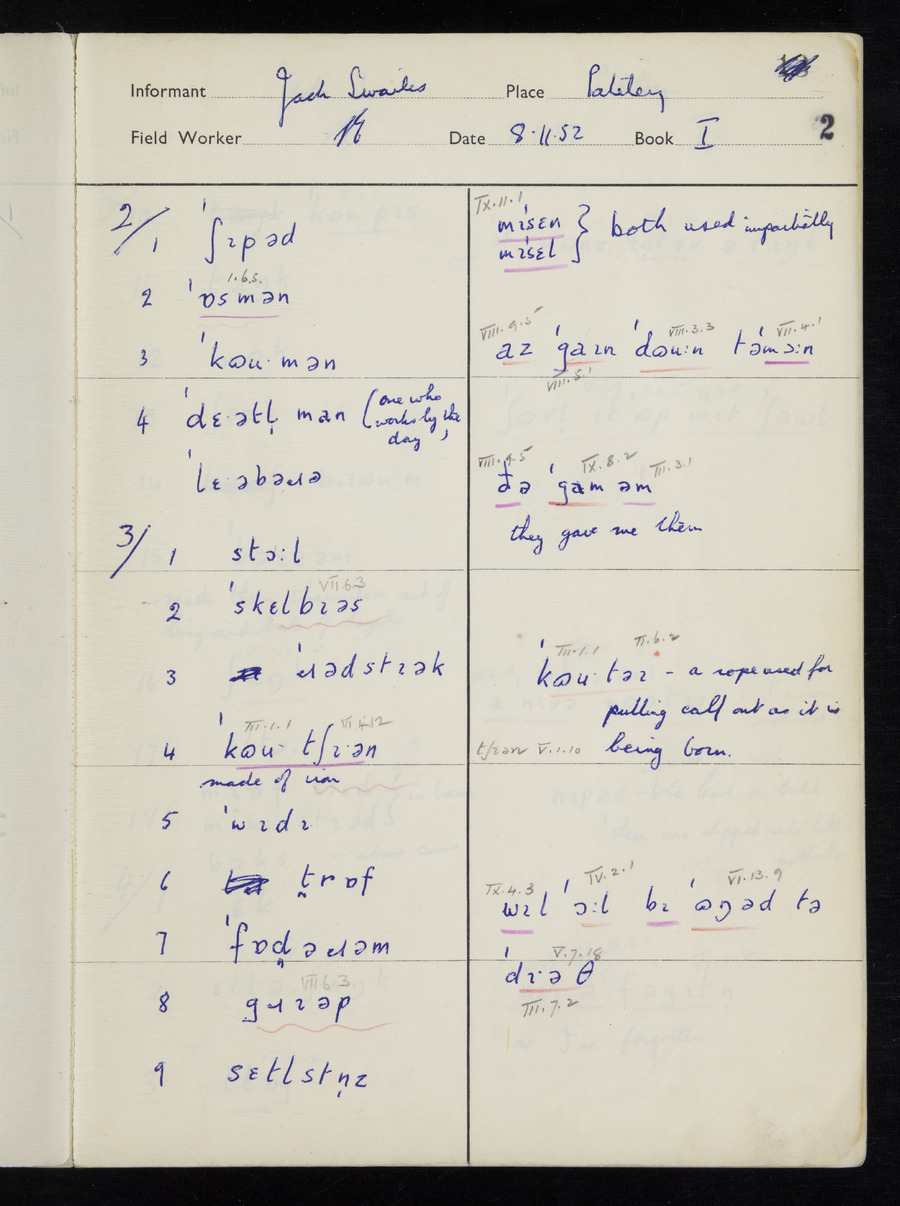 Informant Jack Swailes Place Pateley
Field Worker Date 8.11.52 Book I
2
2/ 1 ˈʃɪpəd
2 ˈɒsmən
1.6.5.
3 ˈkaʊˑmən
4 ˈdɛˑətḷ man (one who works by the day)
ˈlɛˑəbəɹə
3/ 1 stɔːl
2 ˈskɛlbɪəs
VII.6.3
3 ˈɹədstɪək
4 ˈkaʊˑ tʃɪˑən
III.1.1 VI.4.12
made of iron
5 ˈwɪdɪ
6 t̪rɒf
7 ˈfɒd̪əɹəm
8 gɹɪəp
VII.6.3
9 sɛtlstn̩z
IX.11.1
mɪsɛn } both used impartially
mɪsɛl
VIII.9.5 VIII.3.3 VII.4.1
az ˈgaɪn ˈdaʊːn təˈmɔːn
VIII.5.1
VIII.9.5 IX.8.2 III.3.1
ðə ˈgam əm
they gave me them
III.1.1 II.6.2
ˈkaʊˑtəɪ – a rope used for
pulling calf out as it is
being born.
tʃɪən V.1.10
IX.4.3 IV.2.1 VI.13.9
wɪl ˈɔːl bɪ ˈaŋəd tə
ˈdɪˑəθ
V.7.18
III.7.2